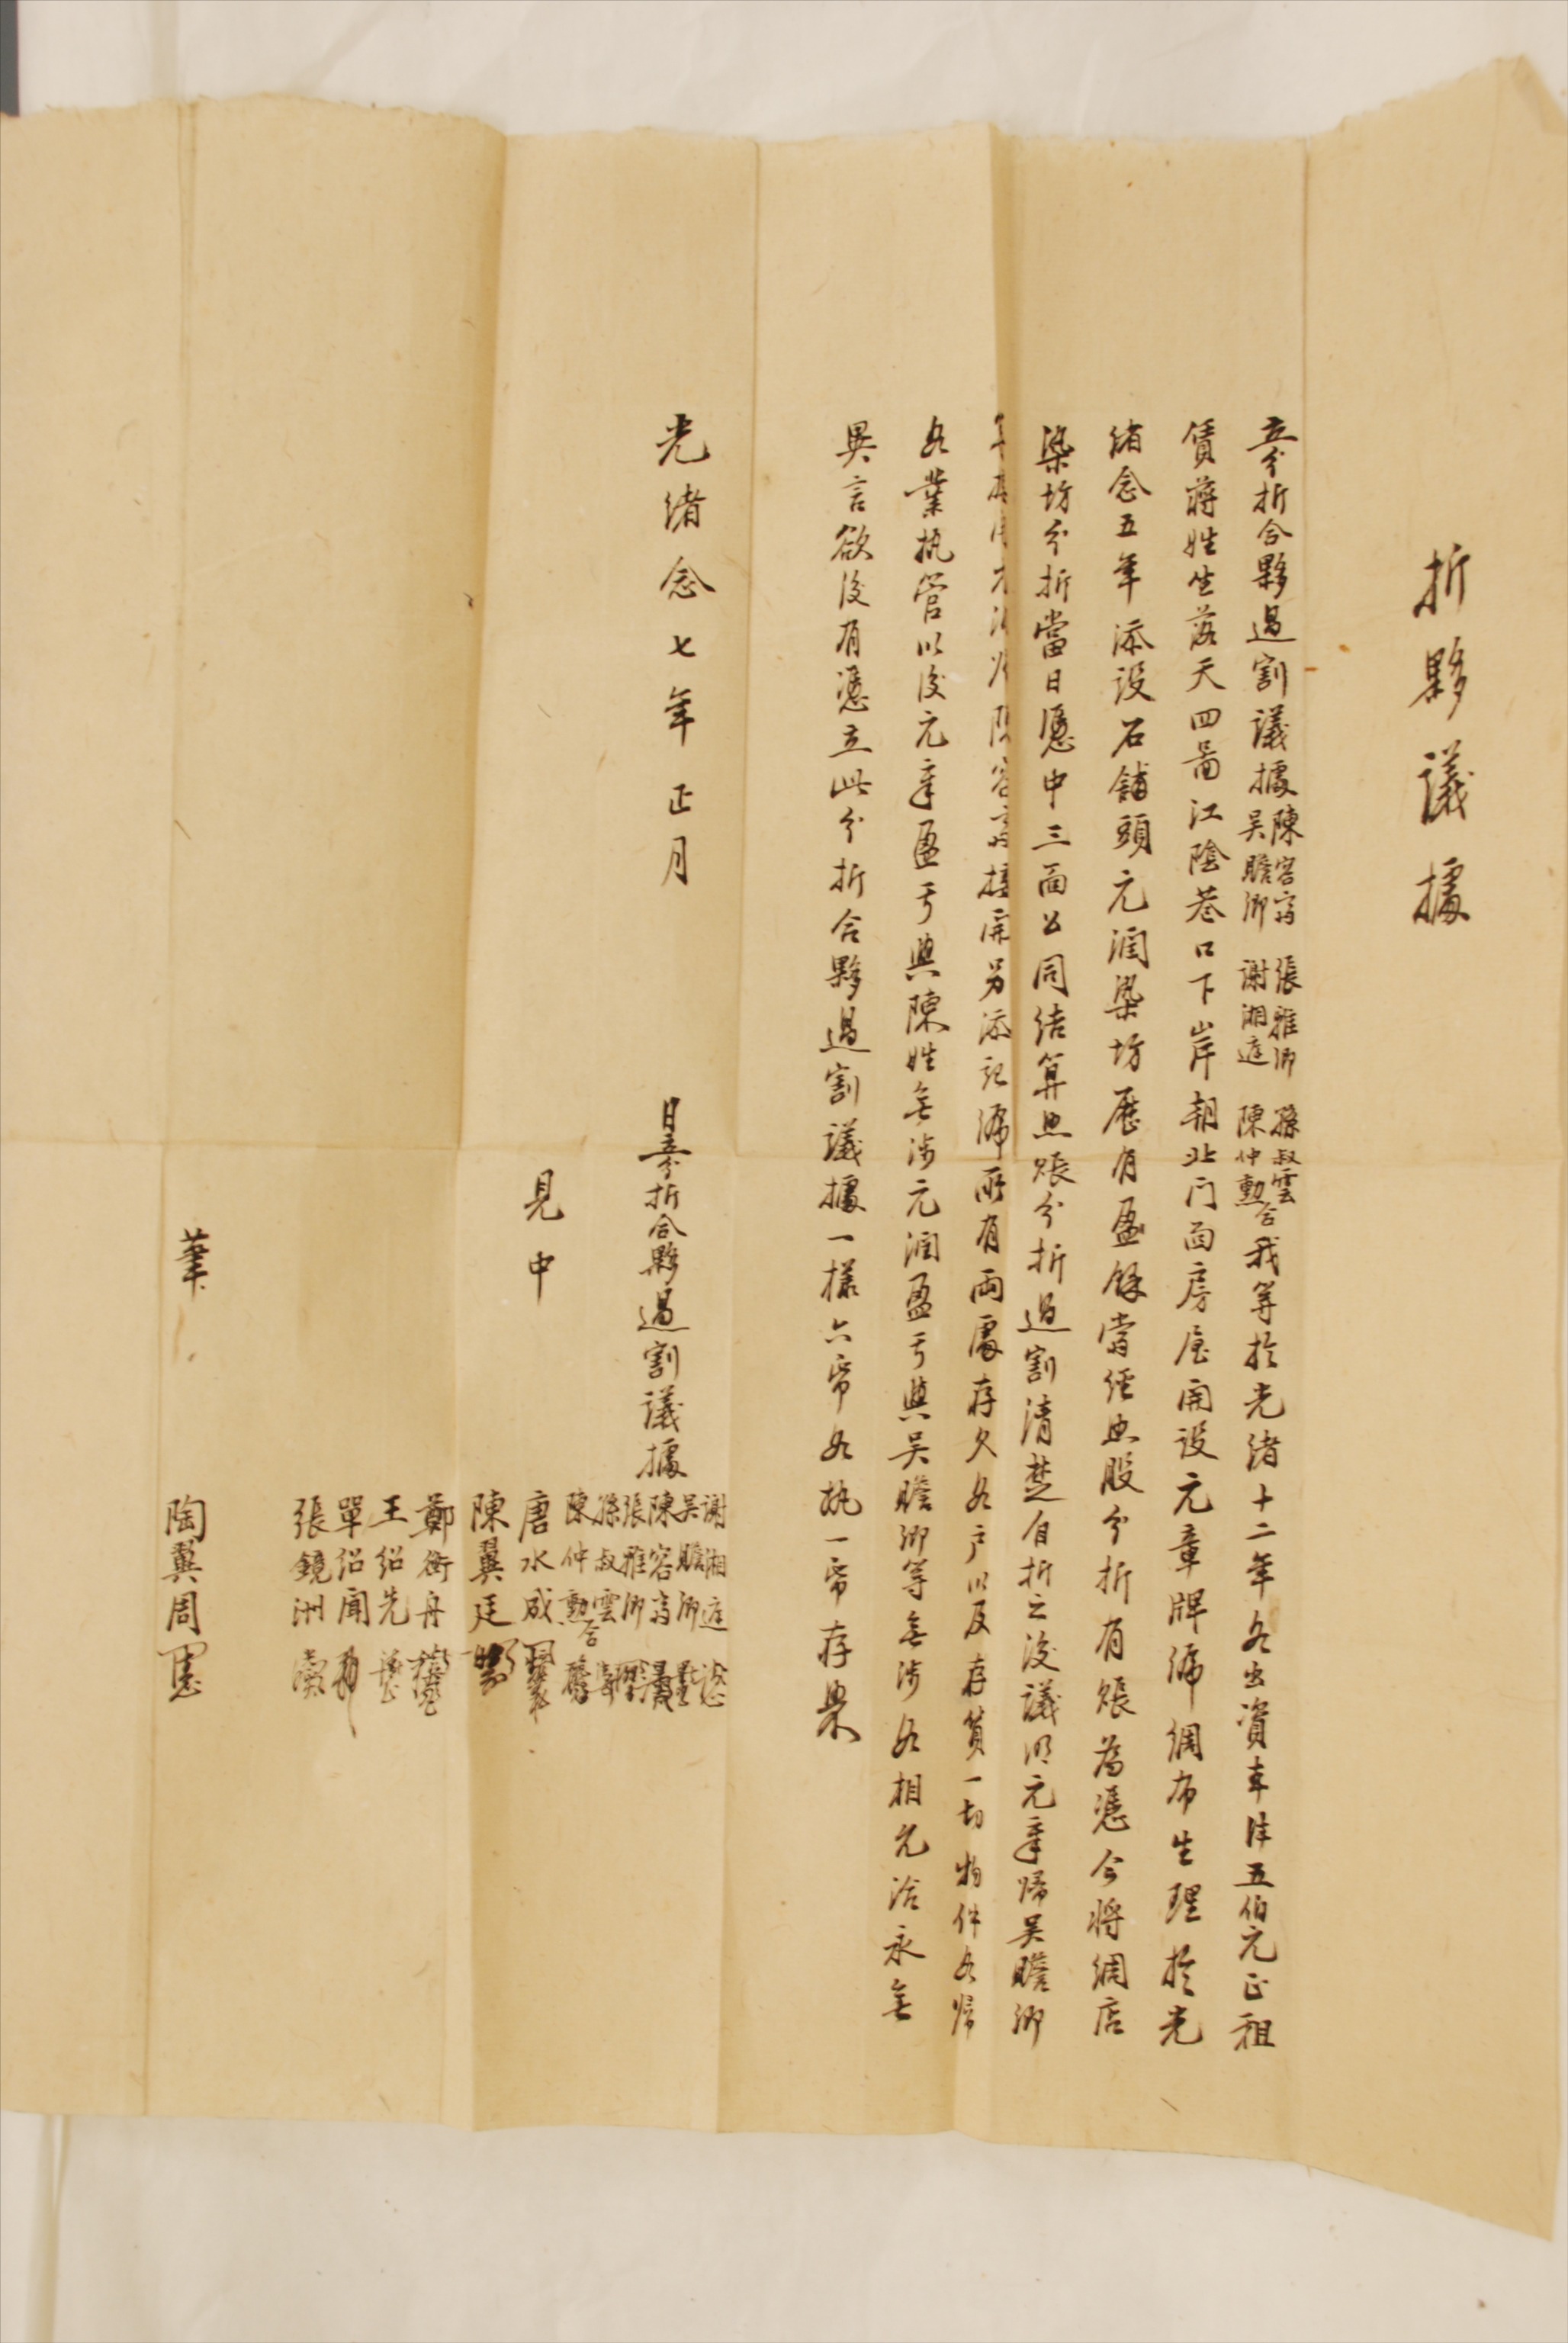 折夥議據
立分折合夥過割議據陳容齋 吳瞻卿 張雅卿 謝湘庭 孫叔雲 陳仲勳 合我等於光緒十二年各出資本洋五伯元正租
賃蔣姓坐落天四啚江陰巷口下岸朝北门面房屋開設元章牌號綢布生理於光
緒念五年添設石舖頭元潤染坊歷有盈餘當經照股分折有賬為憑今將綢店
染坊分折當日憑中三面公同結算照賬分折過割清楚自折之後議明元章歸吳瞻卿
容齋接開另添記號所有兩處存欠各户以及存貨一切物件各歸
各業執管以後元章盈亏與陳姓無涉元潤盈亏與吳瞻卿等無涉各相允洽永無
異言欲後有憑立此分折合夥過割議據一樣六帋各執一帋存照
光緒念七年正月 日立分折合夥過割議據 謝湘庭
吳瞻卿
陳容齋
張雅卿
孫叔雲
陳仲勳 合
見中 唐水成
陳翼廷
鄭衡舟
王紹先
單紹聞
張鏡洲
筆 陶翼周